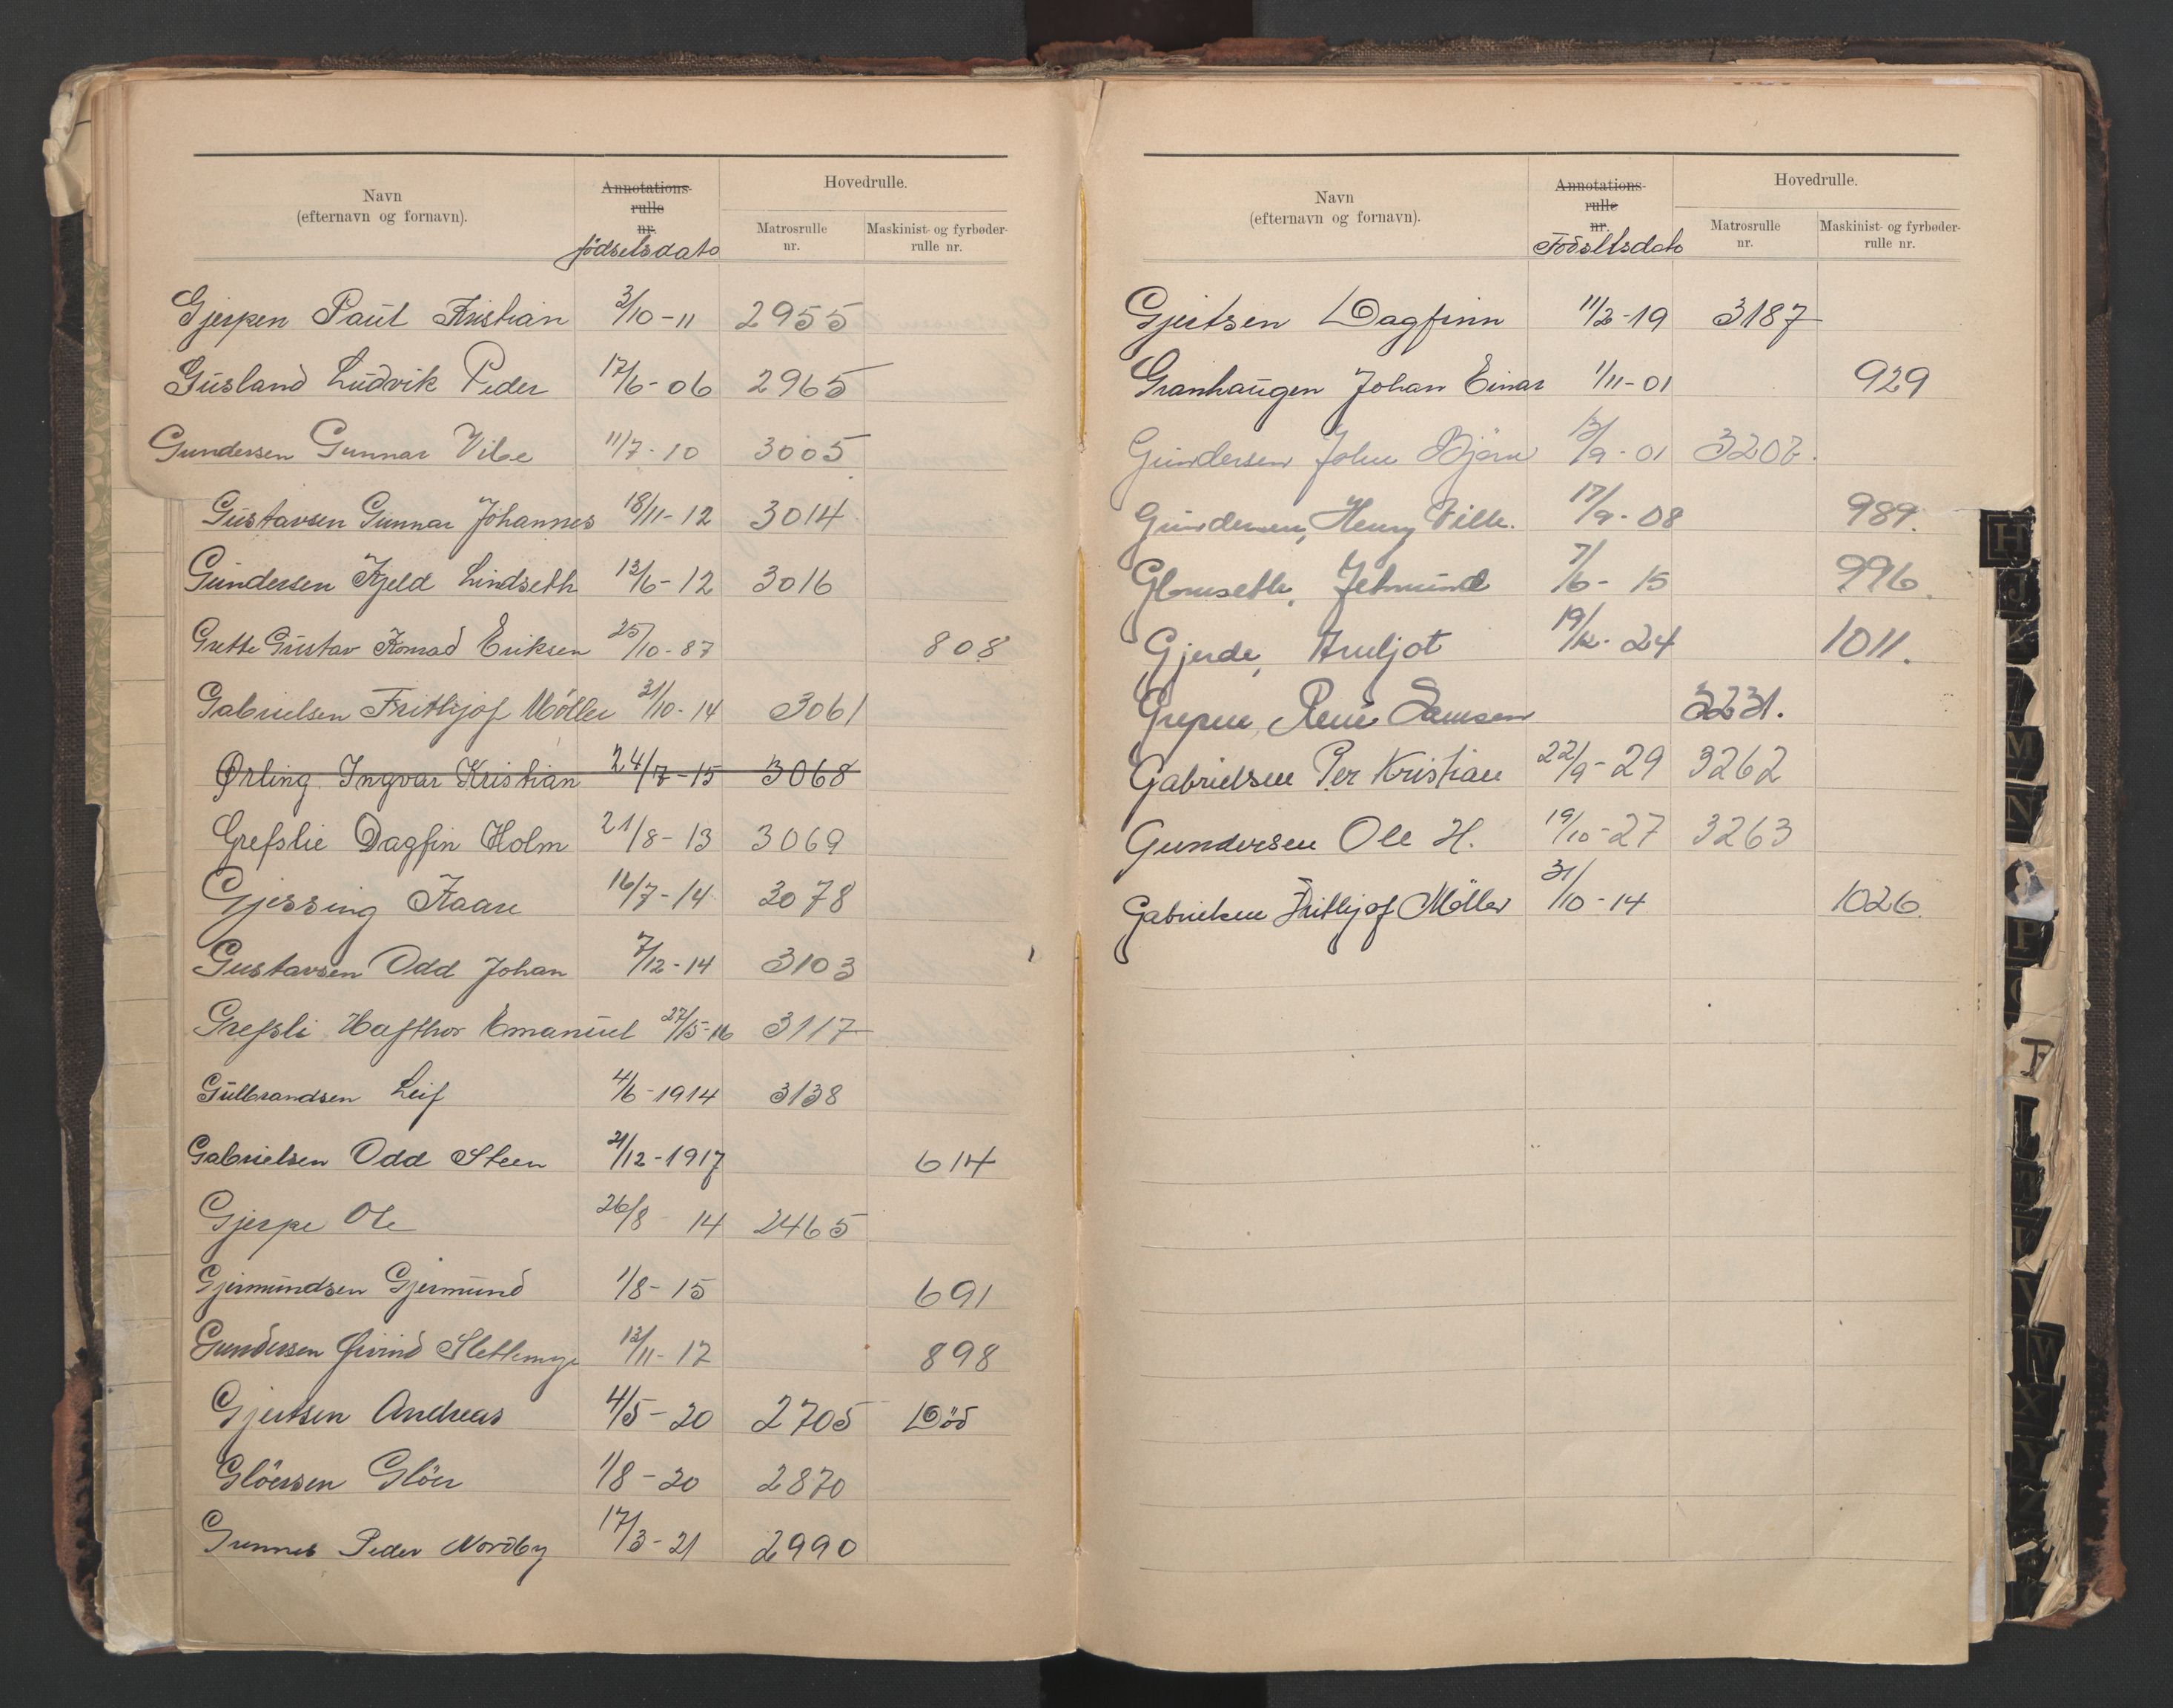 Navn (efternavn og fornavn). Annotations- rulle nr. födselsdato Hovedrulle. Matrosrulle nr. Maskinist- og fyrbøder- rulle nr.
Gjerpen Paul Kristian 3/10-11 2955
Gusland Ludvik Peder 17/6-06 2965
Gundersen Gunnar Vibe 11/7-10 3005
Gustavsen Gunnar Johannes 18/11-12 3014
Gundersen Kjeld Lindseth 13/6-12 3016
Grette Gustav Konrad Eriksen 25/10-87 808
Gabrielsen Frithjof Möller 31/10-14 3061
Ørling Ingvar Kristian 24/7-15 3068
Grefslie Dagfin Holm 21/8-13 3069
Gjessing Kaare 16/7-14 3078
Gustavsen Odd Johan 7/12-14 3103
Grefsli Hafthor Emanuel 27/5-16 3117
Gulbrandsen Leif 4/6-1914 3138
Gabrielsen Odd Steen 21/12-1917 614
Gjerpe Ole 26/8 14 2465
Gjermundsen Gjermund 1/8-15 691
Gundersen Øivind Slettemyr 13/11-17 898
Gjertsen Andreas 4/5-20 2705 Död
Glöersen Glöer 1/8-20 2870
Gunnes Peder Nordby 17/3-21 2990
Navn (efternavn og fornavn). Annotations- rulle nr. Födseltsdato Hovedrulle. Matrosrulle nr. Maskinist- og fyrbøder- rulle nr.
Gjertsen Dagfinn 11/2-19 3187
Granhaugen Johan Einar 1/11-01 929
Gundersen John Björn 13/9-01 3202.
Gundersen, Henry Vilh. 17/9-08 989.
Glomseth, Jetmund 7/6-15 996.
Gjerde, Arnljot 19/12-24 1011.
Grepne, René Samsen 3231.
Gabrielsen Per Kristian 22/9-29 3262
Gundersen Ole H. 19/10-27 3263
Gabrielsen Frithjof Möller 31/10-14 1026.
H
J
M
N
P
W
X
Y